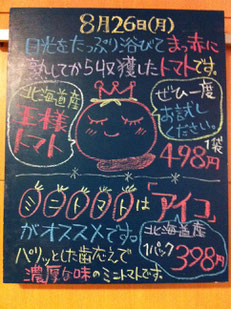 8月26日(月)
日光をたっぷり浴びてまっ赤に
熟してから収穫したトマトです。
北海道産
王様
トマト
ぜひ一度
お試し
ください。
1袋
498円
ミニトマトは「アイコ」
がオススメです。
パリッとした歯応えで
濃厚な味のミニトマトです。
北海道産
1パック
398円